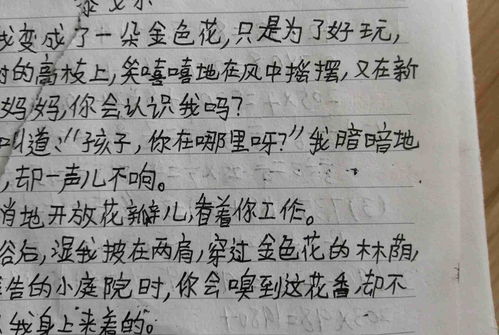 泰戈尔
我变成了一朵金色花,只是为了好玩,
树的高枝上,笑嘻嘻地在风中摇摆,又在新
妈妈,你会认识我吗?
叫道:"孩子,你在哪里呀?"我暗暗地
,却一声儿不响。
悄地开放花瓣儿,看着你工作。
浴后,湿我披在两肩,穿过金色花的林荫,
祷告的小庭院时,你会嗅到这花香,却不
从我身上来着的。